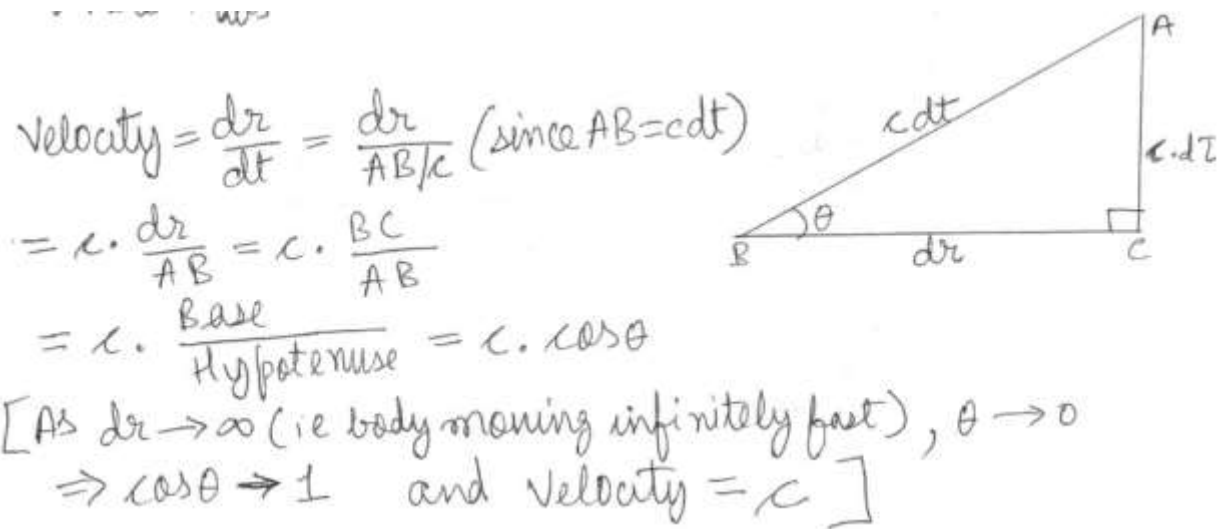 Velocity = dr/dt = dr/(AB/c) (since AB=cdt)
= c. dr/AB = c. BC/AB
= c. Base/Hypotenuse = c. cosθ
[As dr→∞ (ie body moving infinitely fast), θ→0
⇒ cosθ → 1 and velocity = c]
A
cdt
c.dτ
θ
B
dr
C